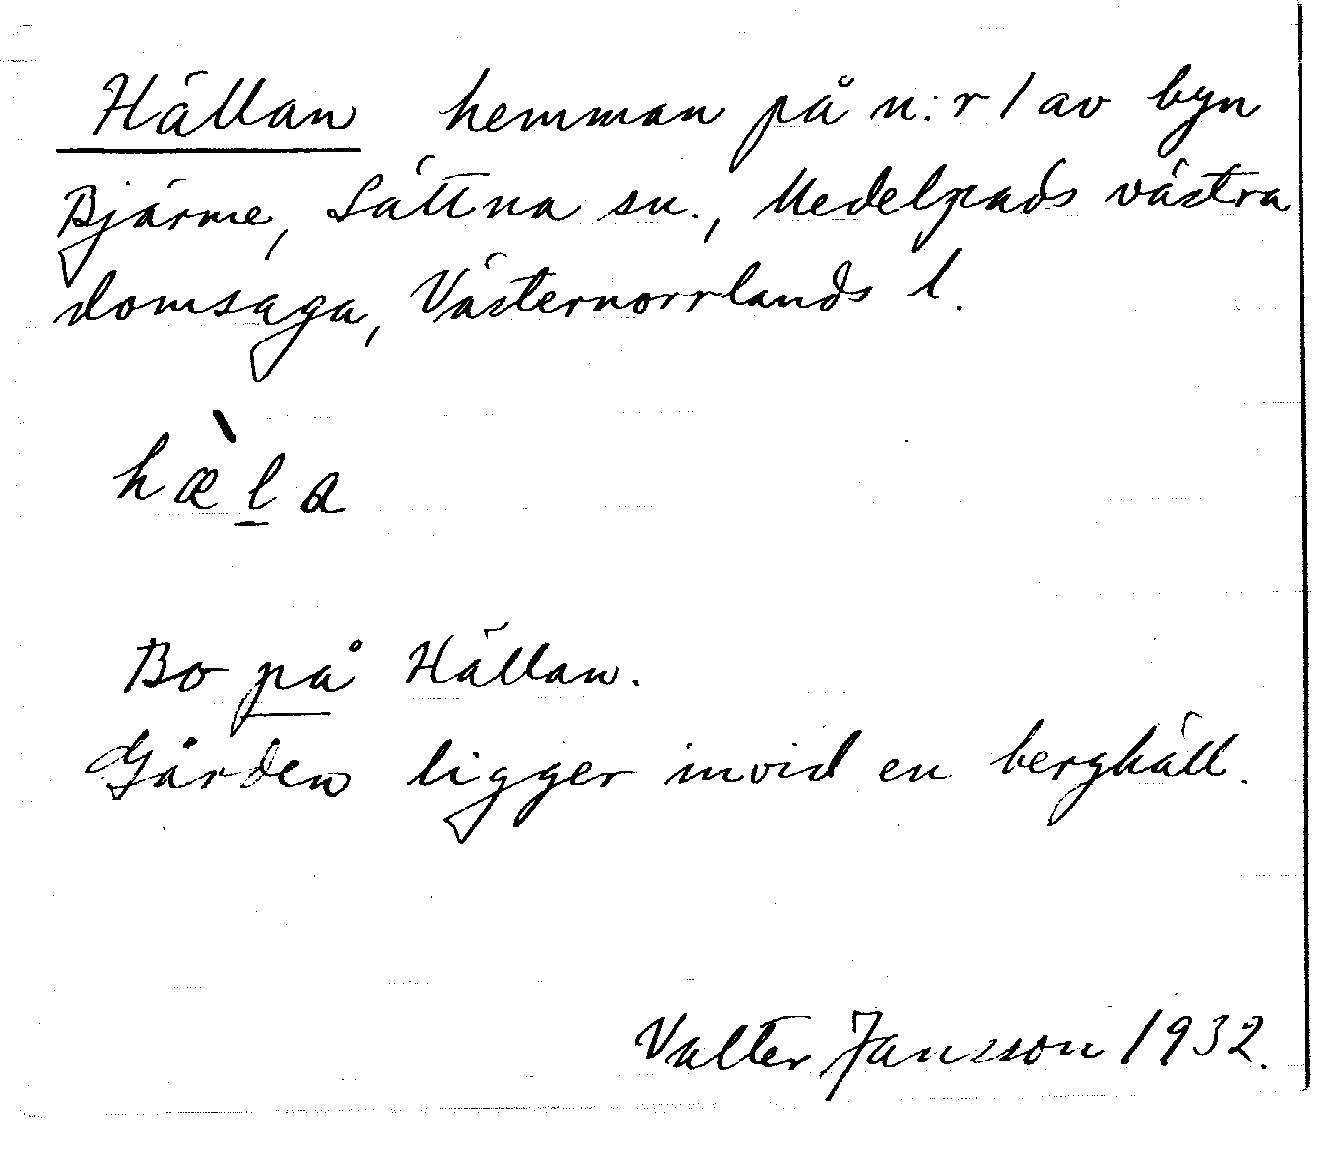 Hällan hemman på n:r 1 av byn
Bjärme, Sättna sn., Medelpads västra
domsaga, Västernorrlands l.
hæ̀l̠a
Bo på Hällan.
Gården ligger invid en berghäll.
Valter Jansson 1932.